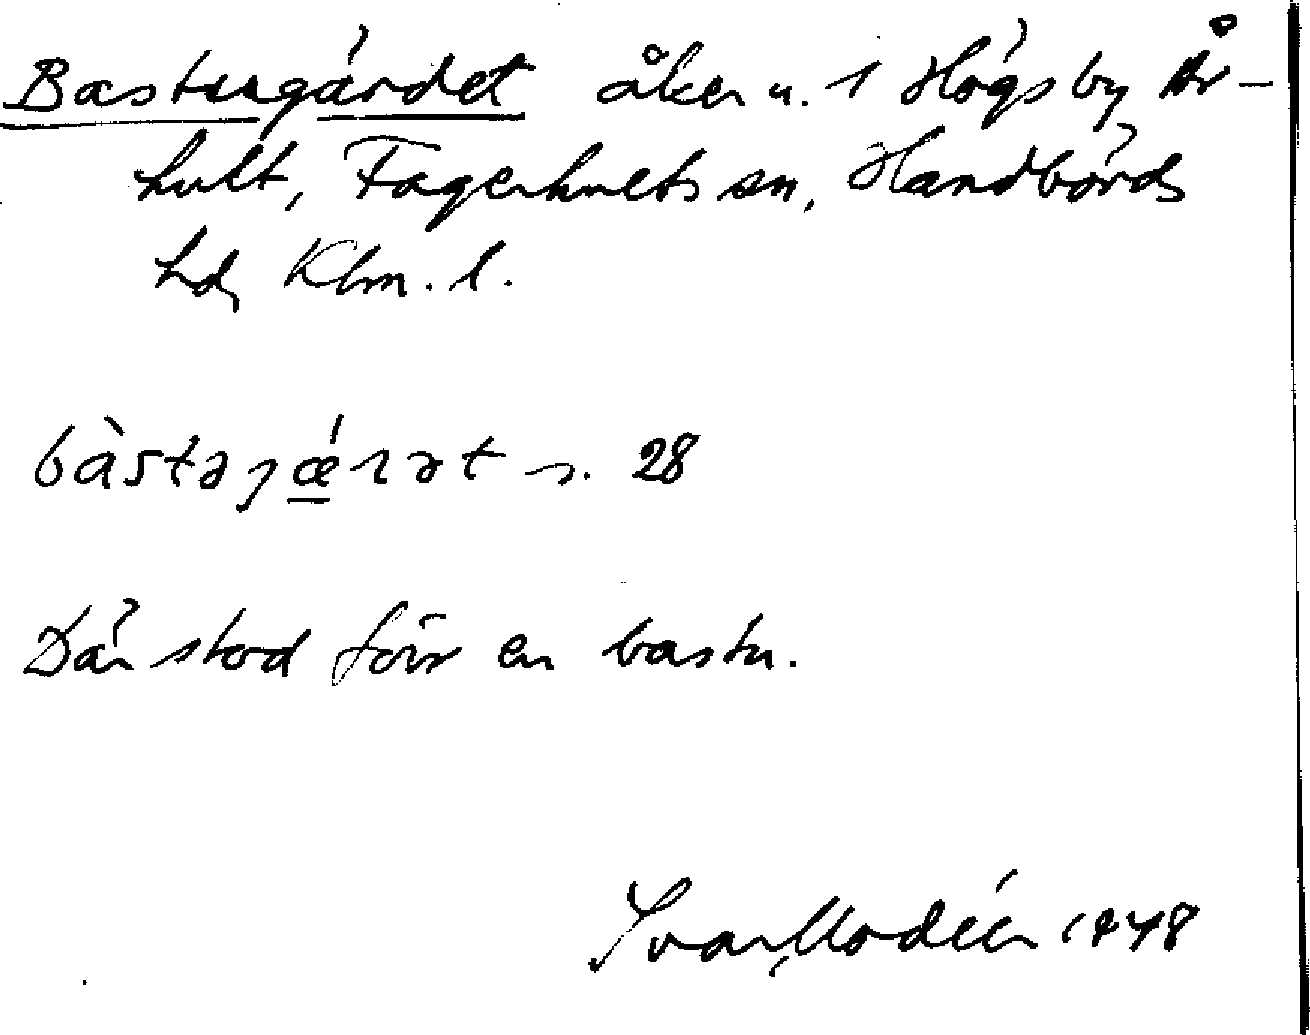 Bastugärdet åker u. 1 Högsby År-
hult, Fagerhults sn, Handbörds
hd, Klm. l.
bàstaȷǽrət n. 28
Där stod förr en bastu.
Ivar Modéer 1948